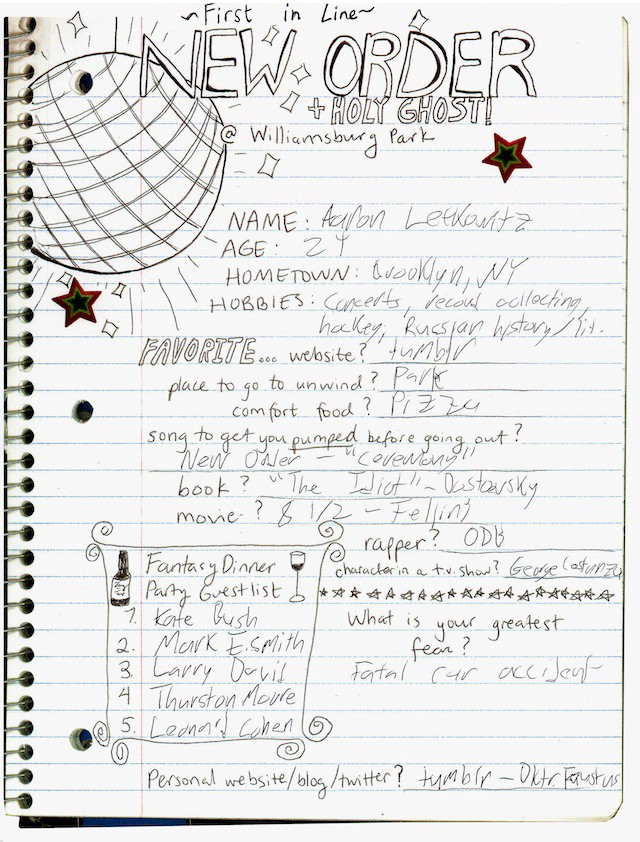 ~First in Line~
NEW ORDER
+ HOLY GHOST!
@ Williamsburg Park
NAME: Aaron Lefkowitz
AGE: 24
HOMETOWN: Brooklyn, NY
HOBBIES: Concerts, record collecting,
hockey, Russian history/lit.
FAVORITE... website? tumblr
place to go to unwind? Park
comfort food? Pizza
song to get you pumped before going out?
New Order - "Ceremony"
book? "The Idiot" - Dostoevsky
movie? 8 1/2 - Fellini
rapper? ODB
character in a t.v. show? George Costanza
Fantasy Dinner
Party Guest list
1. Kate Bush
2. Mark E. Smith
3. Larry David
4 Thurston Moore
5. Leonard Cohen
What is your greatest
fear?
Fatal car accident
Personal website/blog/twitter? tumblr - Dktr. Faustus